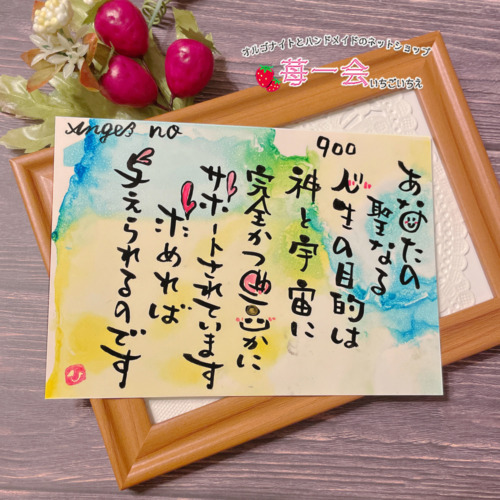 オルゴナイトとハンドメイドのネットショップ
苺一会
いちごいちえ
anges no
900
あなたの
聖なる
人生の目的は
神と宇宙に
完全かつ豊かに
サポートされています
求めれば
与えられるのです